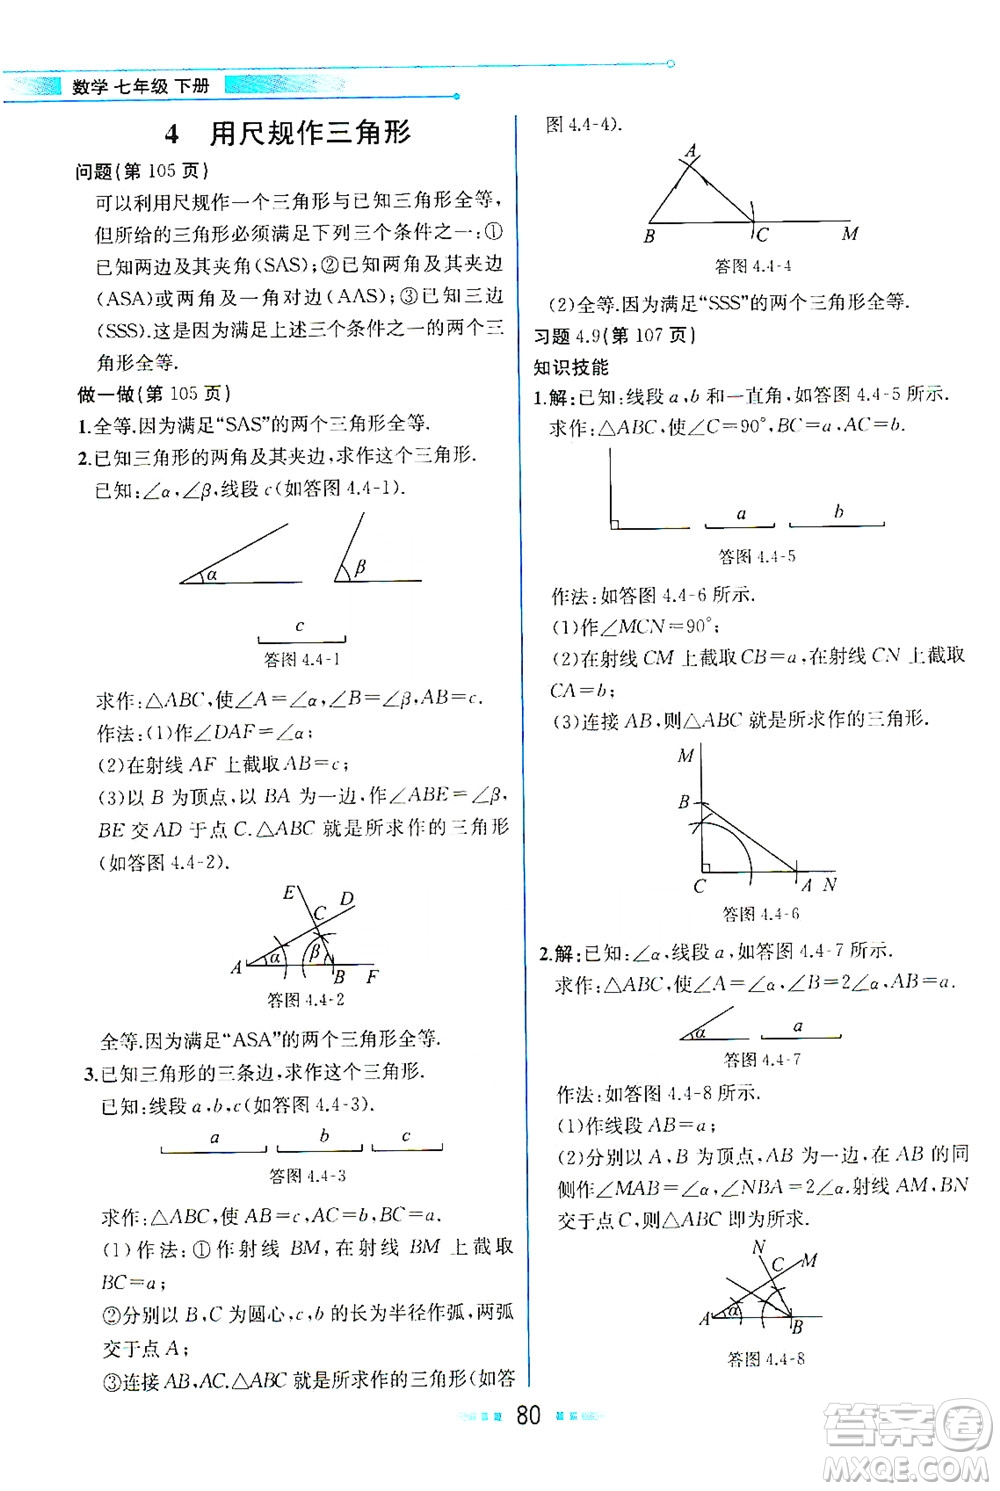 数学 七年级 下册
4 用尺规作三角形
问题(第 105 页)
可以利用尺规作一个三角形与已知三角形全等,
但所给的三角形必须满足下列三个条件之一:①
已知两边及其夹角(SAS);②已知两角及其夹边
(ASA)或两角及一角对边(AAS);③已知三边
(SSS).这是因为满足上述三个条件之一的两个三
角形全等.
做一做(第 105 页)
1.全等.因为满足“SAS”的两个三角形全等.
2.已知三角形的两角及其夹边,求作这个三角形.
已知:∠α,∠β,线段 c(如答图 4.4-1).
α
β
c
答图 4.4-1
求作:△ABC,使∠A=∠α,∠B=∠β,AB=c.
作法:(1)作∠DAF=∠α;
(2)在射线 AF 上截取 AB=c;
(3)以 B 为顶点,以 BA 为一边,作∠ABE=∠β,
BE 交 AD 于点 C.△ABC 就是所求作的三角形
(如答图 4.4-2).
E
C
D
A
α
β
B
F
答图 4.4-2
全等.因为满足“ASA”的两个三角形全等.
3.已知三角形的三条边,求作这个三角形.
已知:线段 a,b,c(如答图 4.4-3).
a
b
c
答图 4.4-3
求作:△ABC,使 AB=c,AC=b,BC=a.
(1)作法:①作射线 BM,在射线 BM 上截取
BC=a;
②分别以 B,C 为圆心,c,b 的长为半径作弧,两弧
交于点 A;
③连接 AB,AC.△ABC 就是所求作的三角形(如答
图 4.4-4).
A
B
C
M
答图 4.4-4
(2)全等.因为满足“SSS”的两个三角形全等.
习题 4.9(第 107 页)
知识技能
1.解:已知:线段 a,b 和一直角,如答图 4.4-5 所示.
求作:△ABC,使∠C=90°,BC=a,AC=b.
a
b
答图 4.4-5
作法:如答图 4.4-6 所示.
(1)作∠MCN=90°;
(2)在射线 CM 上截取 CB=a,在射线 CN 上截取
CA=b;
(3)连接 AB,则△ABC 就是所求作的三角形.
M
B
C
A
N
答图 4.4-6
2.解:已知:∠α,线段 a,如答图 4.4-7 所示.
求作:△ABC,使∠A=∠α,∠B=2∠α,AB=a.
α
a
答图 4.4-7
作法:如答图 4.4-8 所示.
(1)作线段 AB=a;
(2)分别以 A,B 为顶点,AB 为一边,在 AB 的同
侧作∠MAB=∠α,∠NBA=2∠α.射线 AM,BN
交于点 C,则△ABC 即为所求.
N
C
M
A
α
B
答图 4.4-8
80
答案卷
MXQE.COM